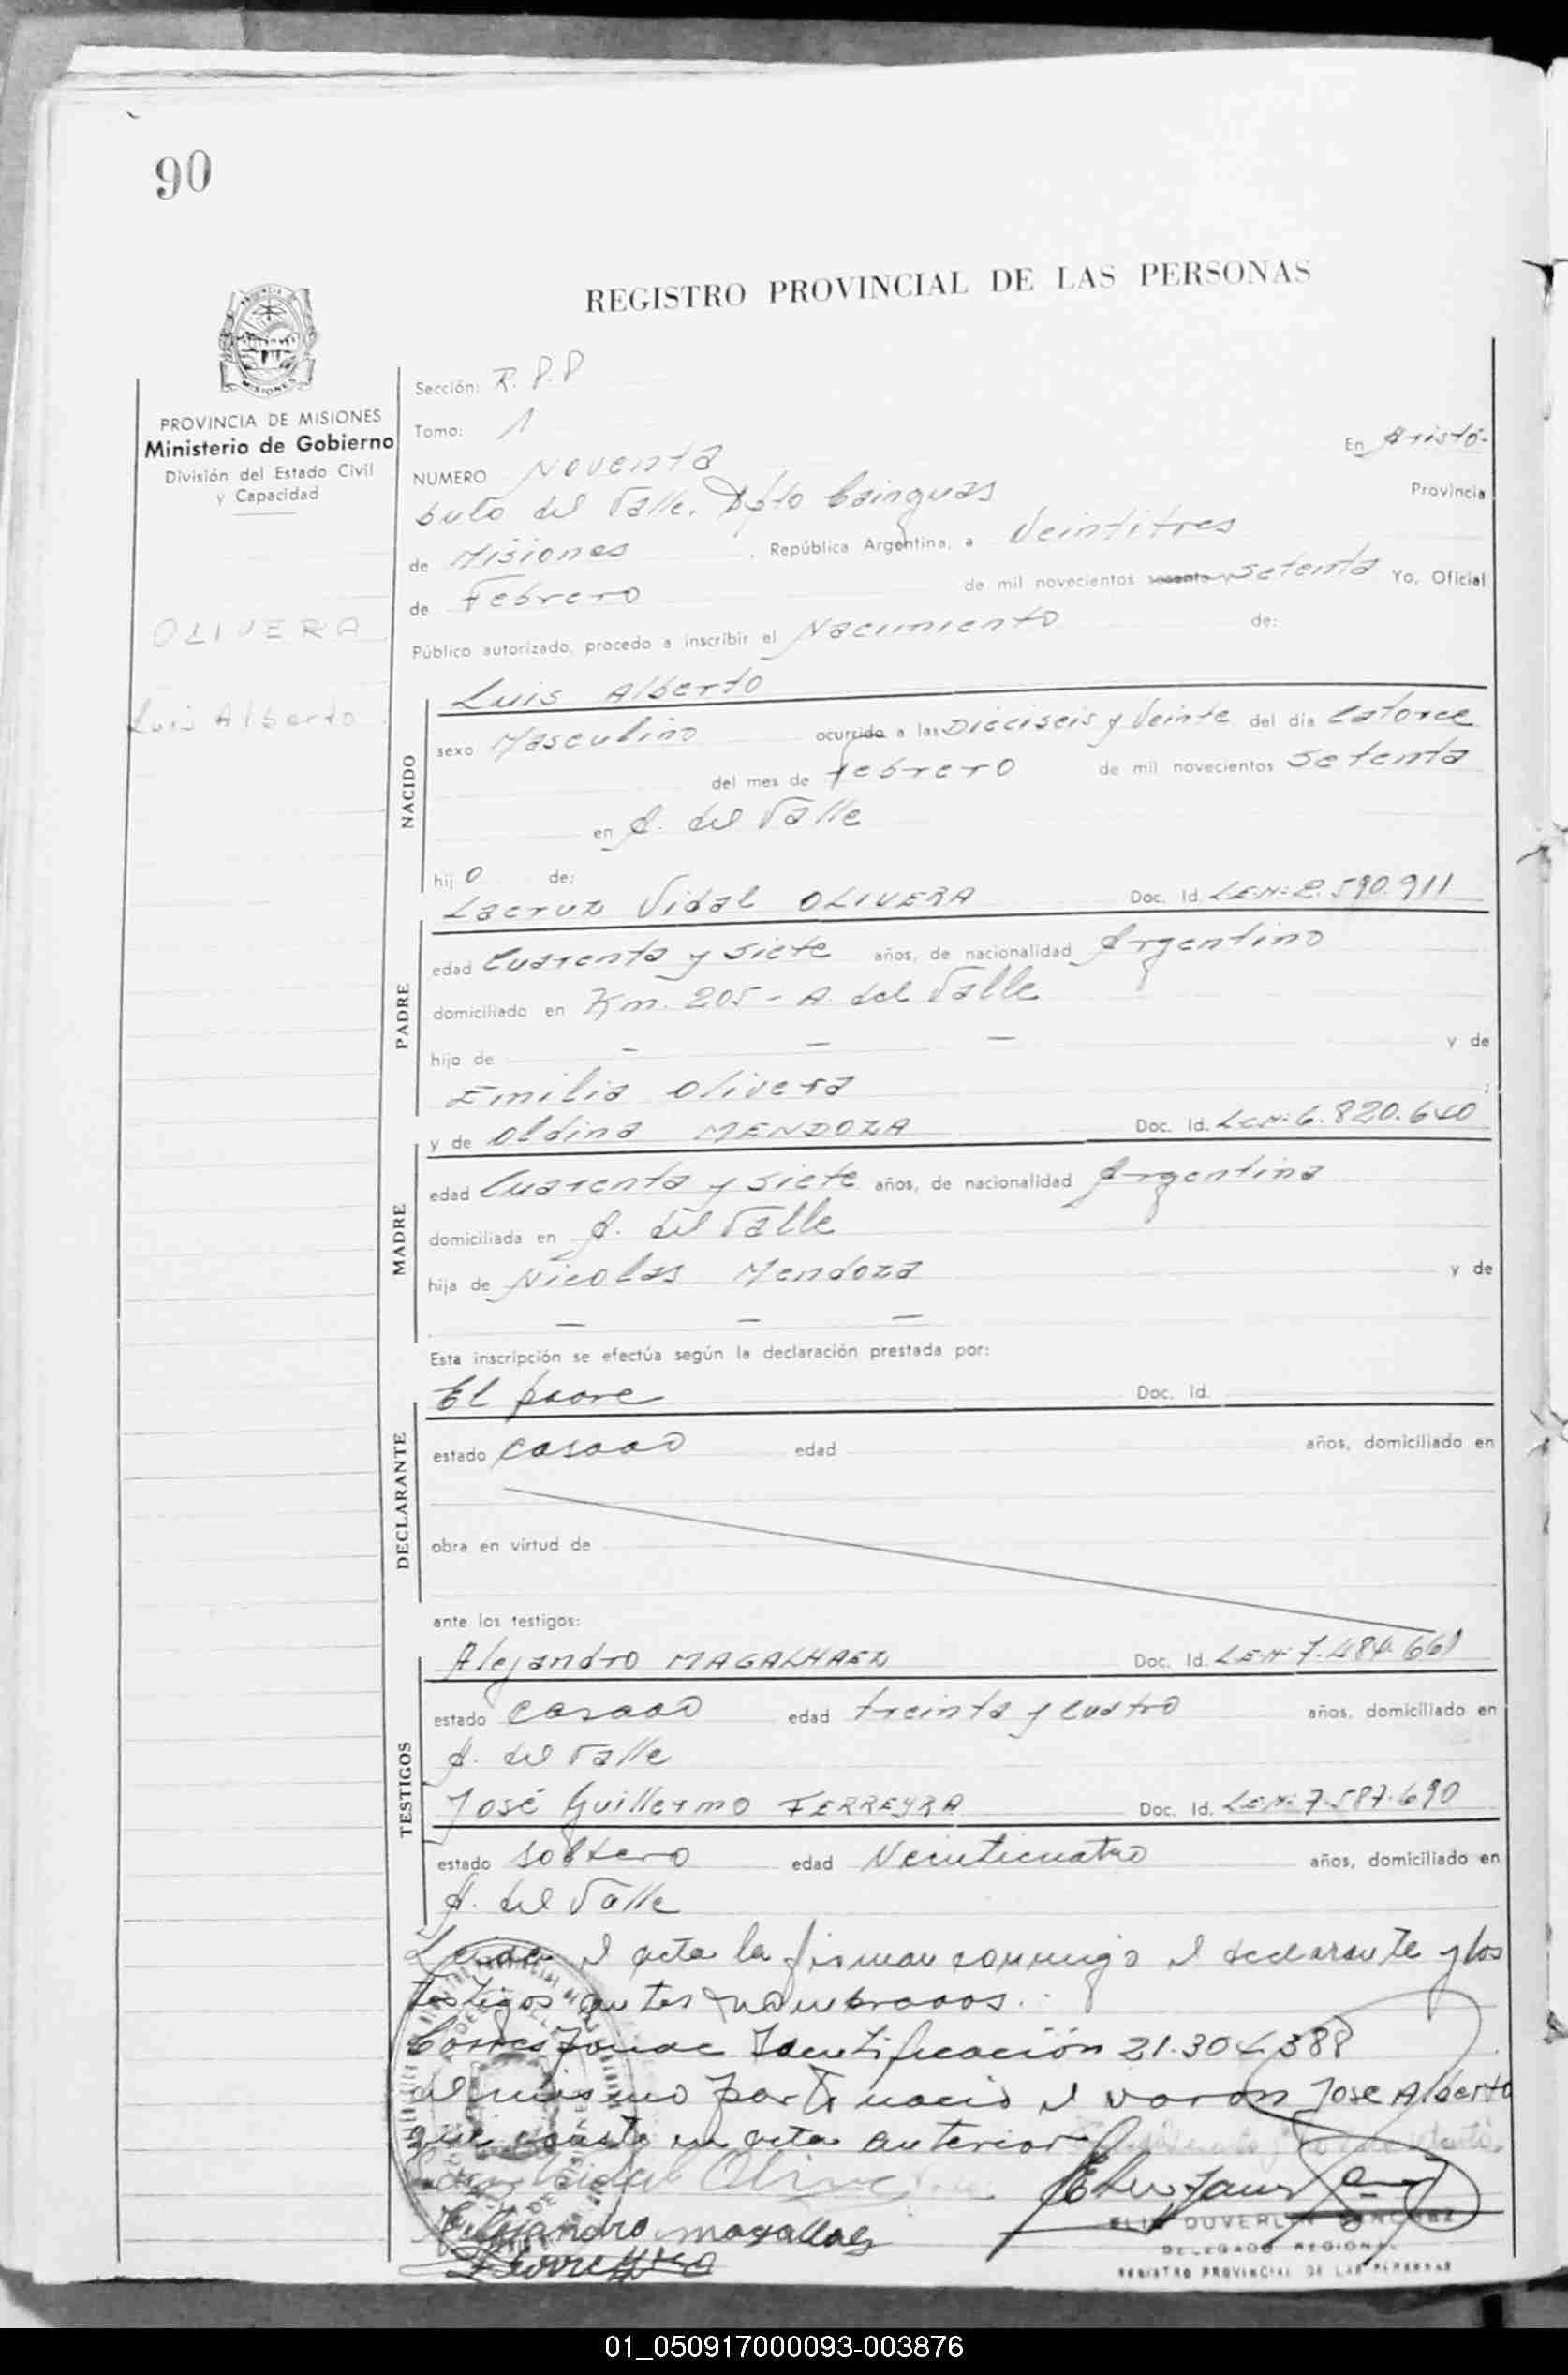 90
REGISTRO PROVINCIAL DE LAS PERSONAS
PROVINCIA DE MISIONES
Ministerio de Gobierno
División del Estado Civil
y Capacidad
OLIVERA
Luis Alberto
Sección: R. P. P
Tomo: 1
En Aristó-
NUMERO Noventa
bulo del Valle. Dpto Cainguas Provincia
de Misiones, República Argentina, a Veintitres
de Febrero de mil novecientos sesenta y setenta Yo, Oficial
Público autorizado, procedo a inscribir el Nacimiento de:
Luis Alberto
NACIDO
sexo Masculino ocurrido a las Dieciseis y Veinte del día Catorce
del mes de febrero de mil novecientos Setenta
en A. del Valle
hijo de:
Lacruz Vidal OLIVERA Doc. Id. LEN: 2.590.911
PADRE
edad Cuarenta y siete años, de nacionalidad Argentino
domiciliado en Km. 205 - A. del Valle
hijo de — — — y de
Emilia Olivera ;
y de Oldina MENDOZA Doc. Id. LCN: 6.820.640
MADRE
edad Cuarenta y siete años, de nacionalidad Argentina
domiciliada en A. del Valle
hija de Nicolas Mendoza y de
— — —
Esta inscripción se efectúa según la declaración prestada por:
El padre Doc. Id.
DECLARANTE
estado casado edad años, domiciliado en
obra en virtud de
ante los testigos:
Alejandro MAGALHAEZ Doc. Id. LEN: 7.484.661
TESTIGOS
estado casado edad treinta y cuatro años, domiciliado en
A. del Valle
José Guillermo FERREYRA Doc. Id. LEN: 7.587.690
estado soltero edad Veinticuatro años, domiciliado en
A. del Valle
Leida el acta la firman conmigo el declarante y los
testigos antes nombrados.
Corresponde Identificación 21.304.388
del mismo parto nació el varon Jose Alberto
que consta en acta anterior
Vidal Olive
Alejandro magallaes
Ferreyra
ELIO DUVERLIN SANCHEZ
DELEGADO REGIONAL
REGISTRO PROVINCIAL DE LAS PERSONAS
01_050917000093-003876